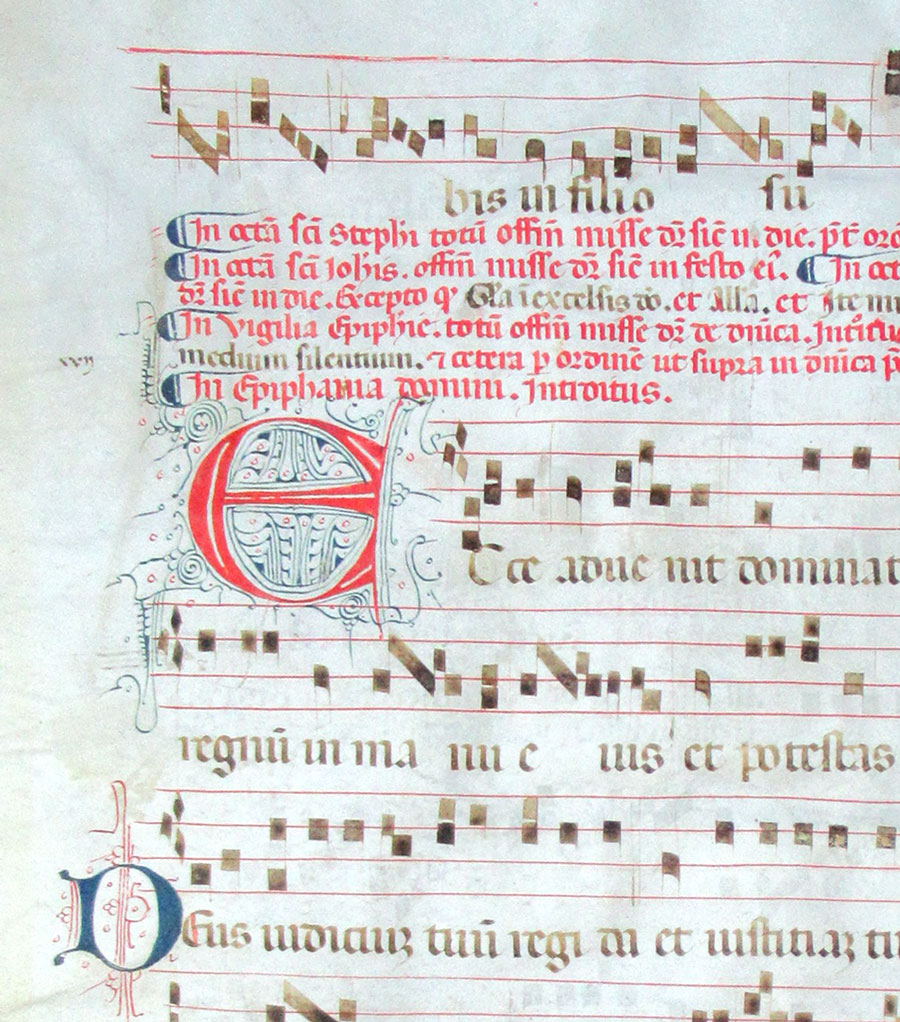 bis in filio su
In octā scī Stephi totū offm̄ misse dr̄ sic̄ in die. p̄t orō
In octā scī Iohīs. offm̄ misse dr̄ sic̄ in festo ei᷒. In oct
dr̄ sic̄ in die. Excepto qͦ Gl̄a ī excelsis dō. et All̄a. et Ite mi
In Vigilia Epiphīe. totū offm̄ misse dr̄ de dn̄ica. Introitus
xvij
medium silentium. ⁊ cetera ꝑ ordinē ut supra in dn̄ica
In Epiphania domini. Introitus.
Ecce advenit dominat
regnū in manu eius et potestas
Deus iudiciuꝫ tuū regi da et iustitiaꝫ tu